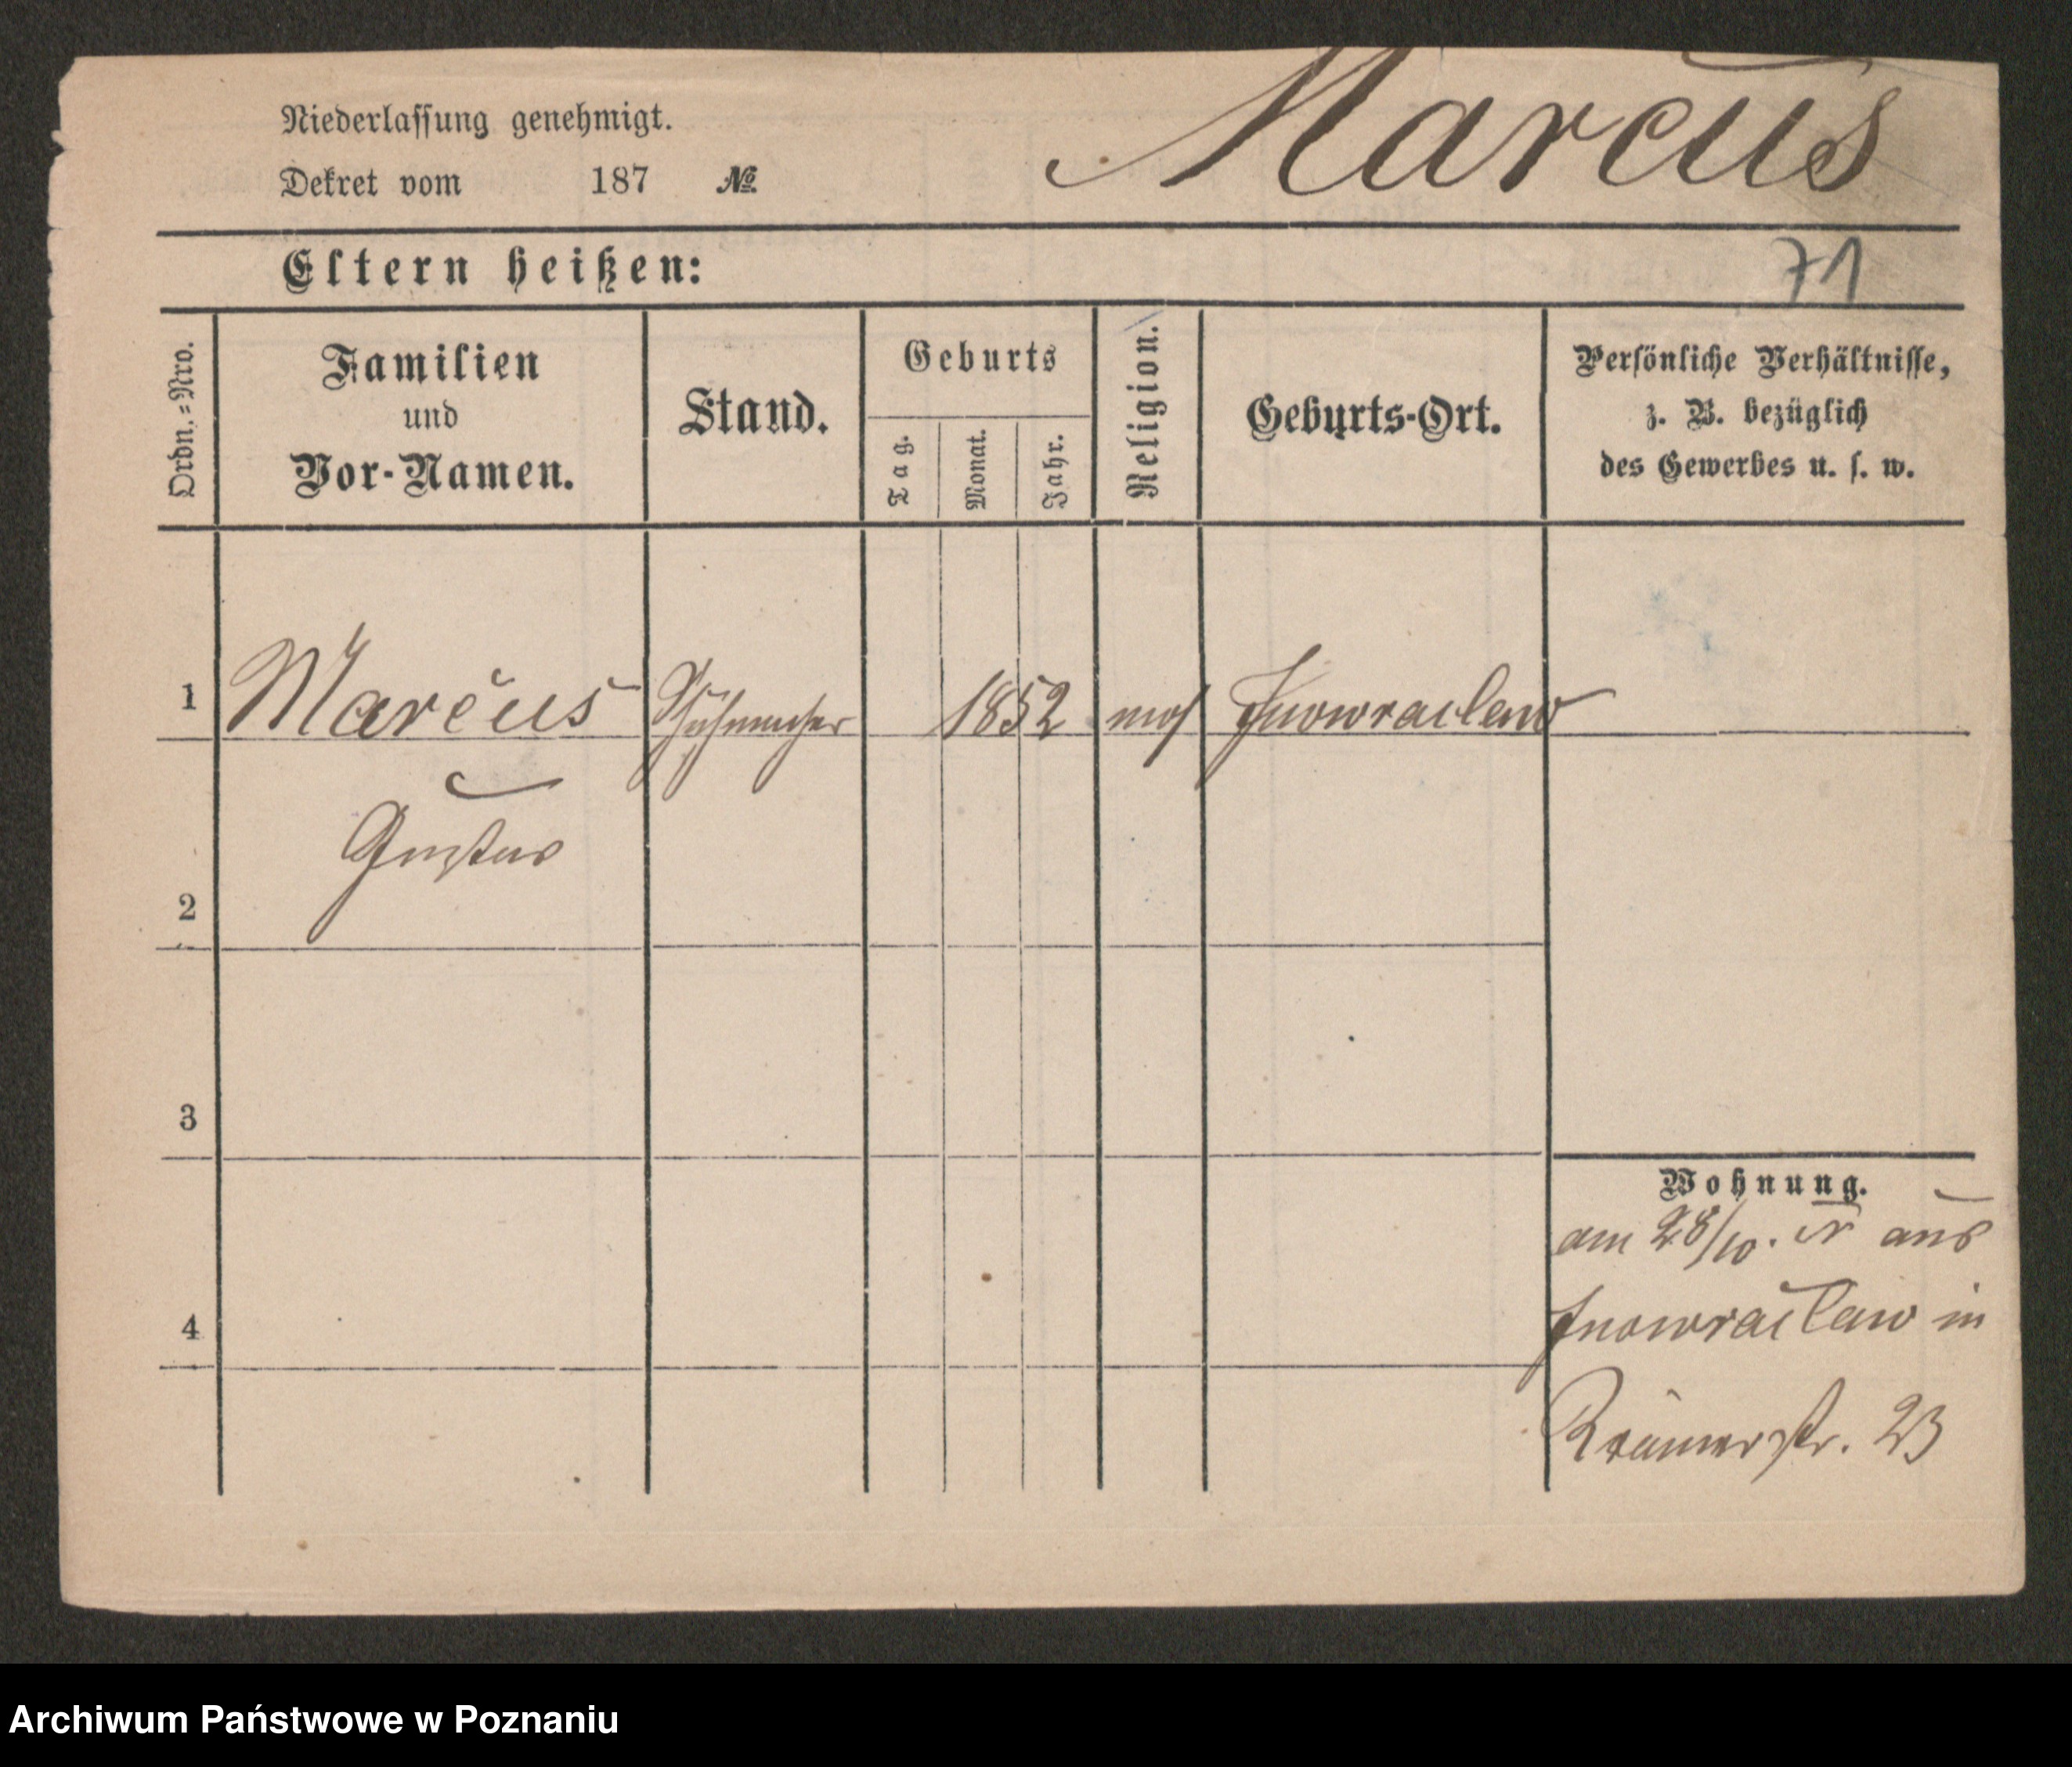 Niederlassung genehmigt.
Marcus
Dekret vom 187 №
Eltern heißen:
71
Ordn.=Nro.
Familien
und
Vor-Namen.
Stand.
Geburts
Tag.
Monat.
Jahr.
Religion.
Geburts-Ort.
Persönliche Verhältnisse,
z. B. bezüglich
des Gewerbes u. s. w.
1 Marcus 1852 mos Inowraclaw
Gustav
2
3
4
Wohnung.
am 28/10. aus
Inowraclaw in
Krämerstr. 23
Archiwum Państwowe w Poznaniu